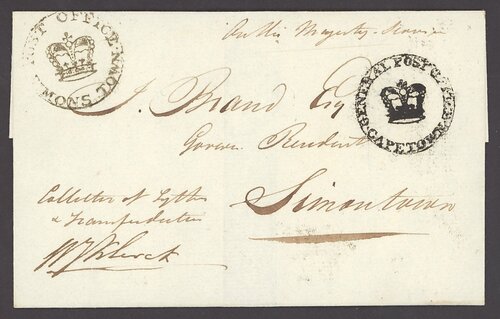 POST OFFICE
SIMONS TOWN
On His Majesty's Service
GENERAL POST OFFICE
CAPETOWN
J. Brand Esq
Govern Resident
Simontown
Collector of Tythes
& Transfer duties